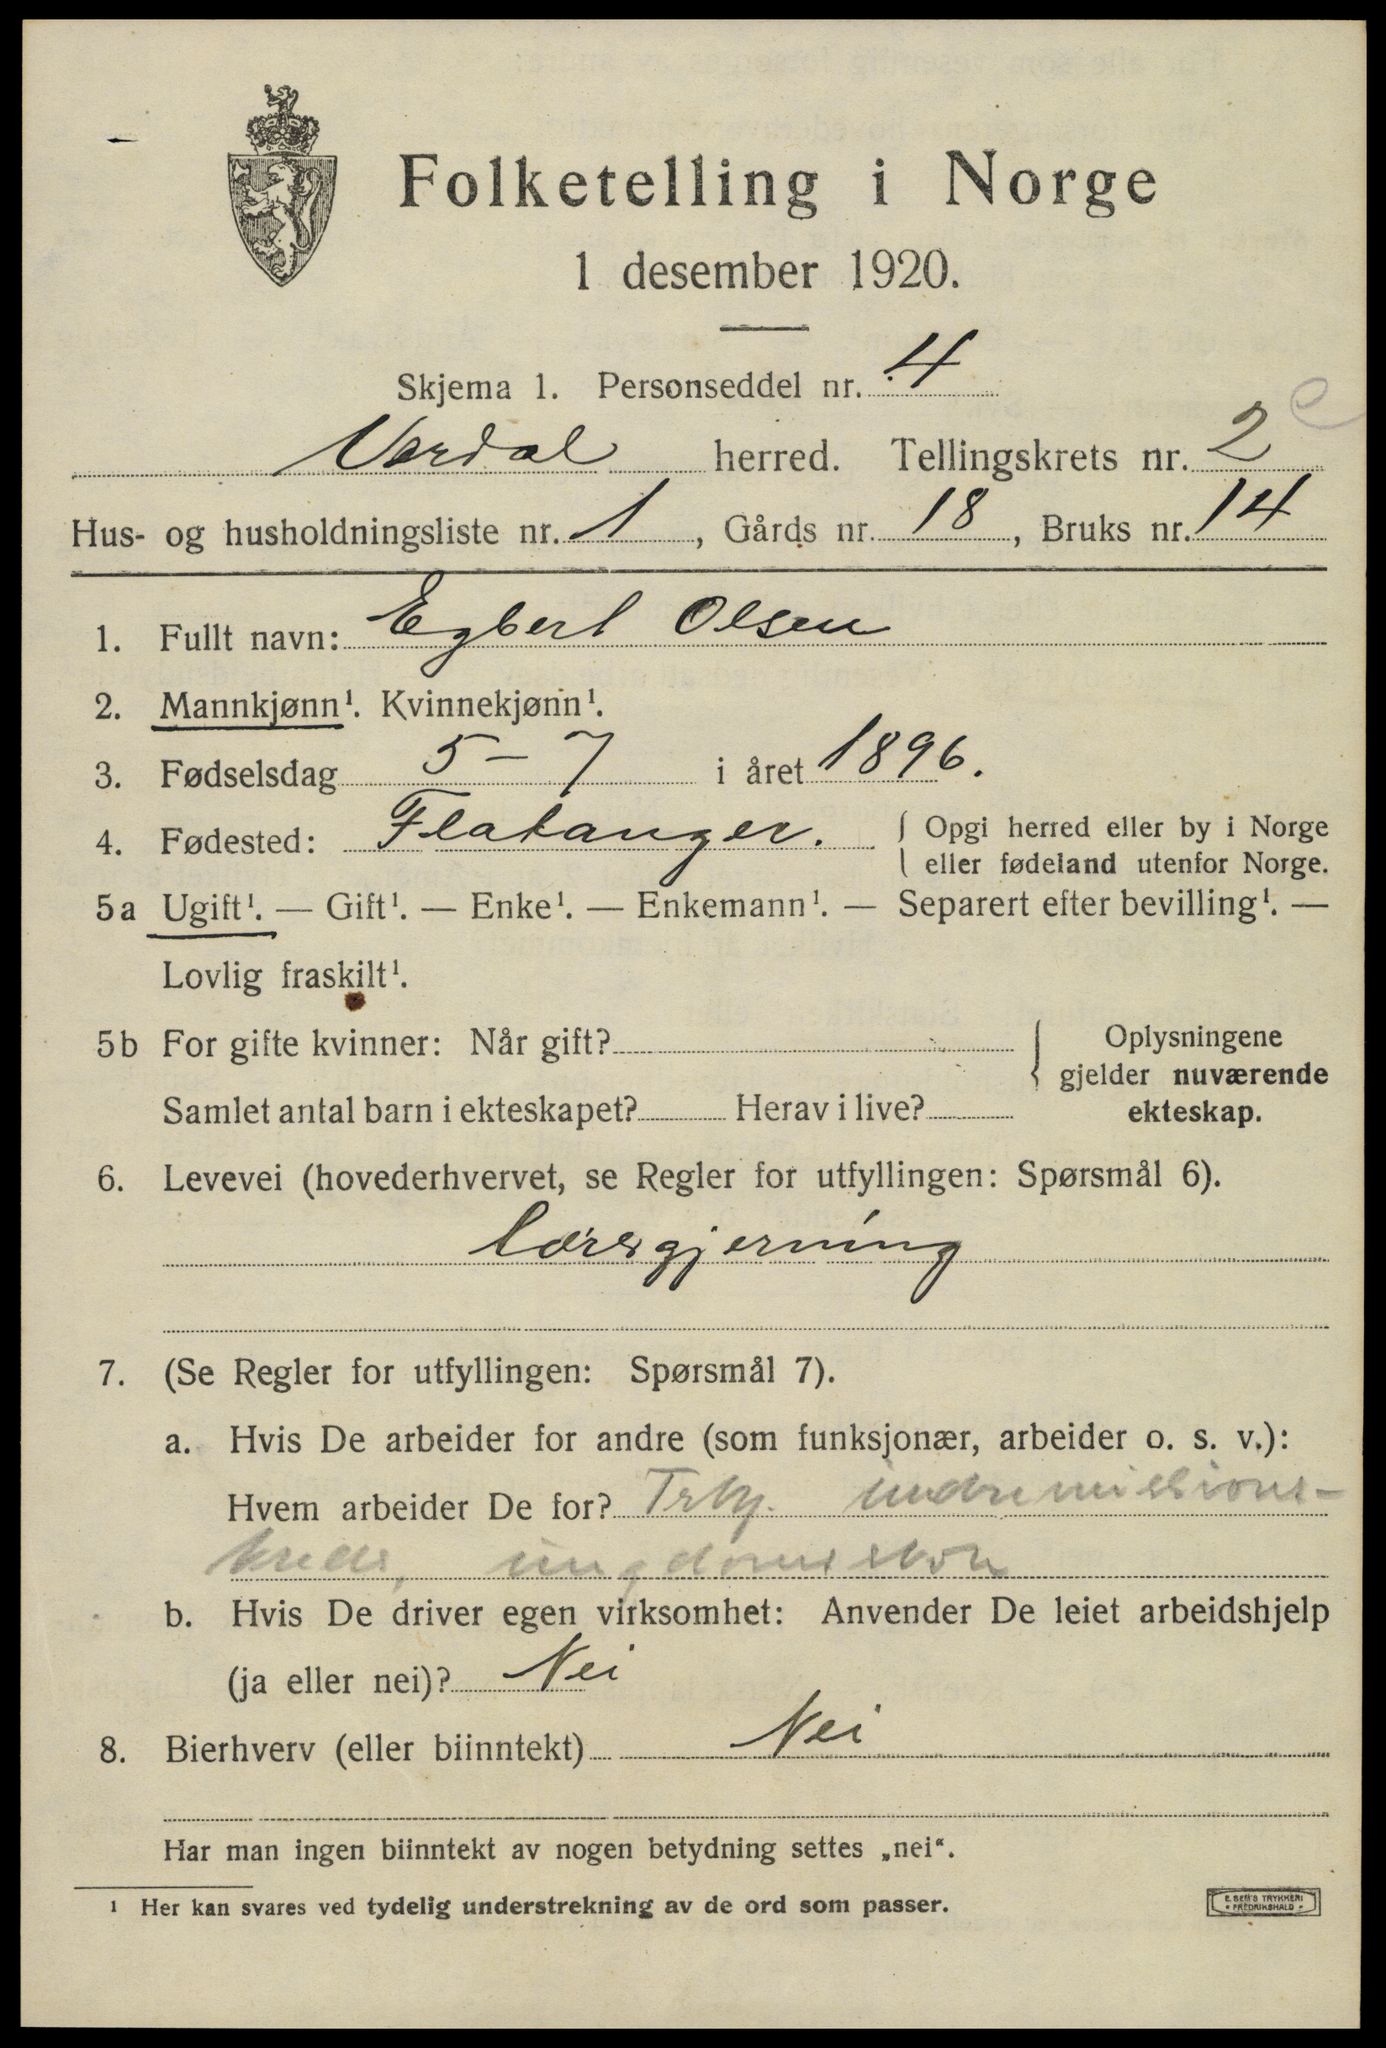 Folketelling i Norge
1 desember 1920.
Skjema 1. Personseddel nr. 4
Verdal herred. Tellingskrets nr. 2
Hus- og husholdningsliste nr. 1, Gårds nr. 18, Bruks nr. 14
1. Fullt navn: Egbert Olsen
2. Mannkjønn¹. Kvinnekjønn¹.
3. Fødselsdag 5-7 i året 1896.
4. Fødested: Flatanger. { Opgi herred eller by i Norge
eller fødeland utenfor Norge.
5a Ugift¹. — Gift¹. — Enke¹. — Enkemann¹. — Separert efter bevilling¹. —
Lovlig fraskilt¹.
5b For gifte kvinner: Når gift? { Oplysningene
gjelder nuværende
Samlet antal barn i ekteskapet? Herav i live? ekteskap.
6. Levevei (hovederhvervet, se Regler for utfyllingen: Spørsmål 6).
Lærergjerning
7. (Se Regler for utfyllingen: Spørsmål 7).
a. Hvis De arbeider for andre (som funksjonær, arbeider o. s. v.):
Hvem arbeider De for? indremissions-
kreds, ungdomsskole
b. Hvis De driver egen virksomhet: Anvender De leiet arbeidshjelp
(ja eller nei)? Nei
8. Bierhverv (eller biinntekt) Nei
Har man ingen biinntekt av nogen betydning settes „nei“.
¹ Her kan svares ved tydelig understrekning av de ord som passer.
E. SEM'S TRYKKERI
FREDRIKSHALD